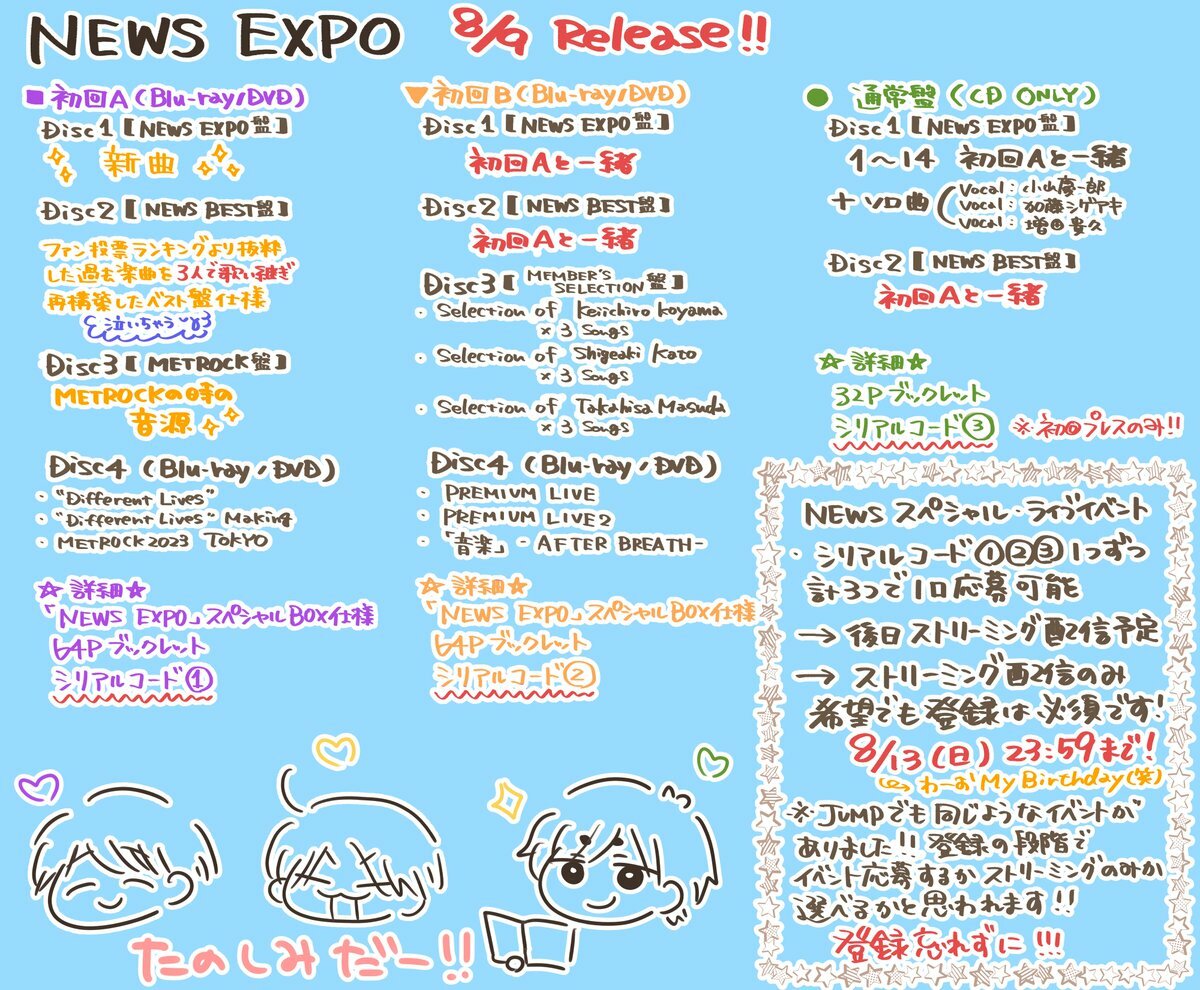 NEWS EXPO 8/9 Release!!
■ 初回A (Blu-ray/DVD)
Disc1 [NEWS EXPO盤]
新曲
Disc2 [NEWS BEST盤]
ファン投票ランキングより抜粋
した過去楽曲を3人で歌い継ぎ
再構築したベスト盤仕様
泣いちゃう
Disc3 [METROCK盤]
METROCKの時の
音源
Disc4 (Blu-ray/DVD)
・"Different Lives"
・"Different Lives" Making
・METROCK2023 TOKYO
☆詳細☆
「NEWS EXPO」スペシャルBOX仕様
64Pブックレット
シリアルコード①
▼初回B (Blu-ray/DVD)
Disc1 [NEWS EXPO盤]
初回Aと一緒
Disc2 [NEWS BEST盤]
初回Aと一緒
Disc3 [MEMBER'S
SELECTION盤]
・Selection of Keiichiro Koyama
×3 Songs
・Selection of Shigeaki Kato
×3 Songs
・Selection of Takahisa Masuda
×3 Songs
Disc4 (Blu-ray/DVD)
・PREMIUM LIVE
・PREMIUM LIVE2
・「音楽」-AFTER BREATH-
☆詳細☆
「NEWS EXPO」スペシャルBOX仕様
64Pブックレット
シリアルコード②
● 通常盤 (CD ONLY)
Disc1 [NEWS EXPO盤]
1〜14 初回Aと一緒
+ソロ曲
Vocal:小山慶一郎
Vocal:加藤シゲアキ
Vocal:増田貴久
Disc2 [NEWS BEST盤]
初回Aと一緒
☆詳細☆
32Pブックレット
シリアルコード③ ※初回プレスのみ!!
NEWS スペシャル・ライブイベント
・シリアルコード①②③1つずつ
計3つで1口応募可能
→後日ストリーミング配信予定
→ストリーミング配信のみ
希望でも登録は必須です!
8/13(日) 23:59まで!
わーお My Birthday(笑)
※JUMPでも同じようなイベントが
ありました!!登録の段階で
イベント応募するかストリーミングのみか
選べるかと思われます!!
登録忘れずに!!!
たのしみだー!!